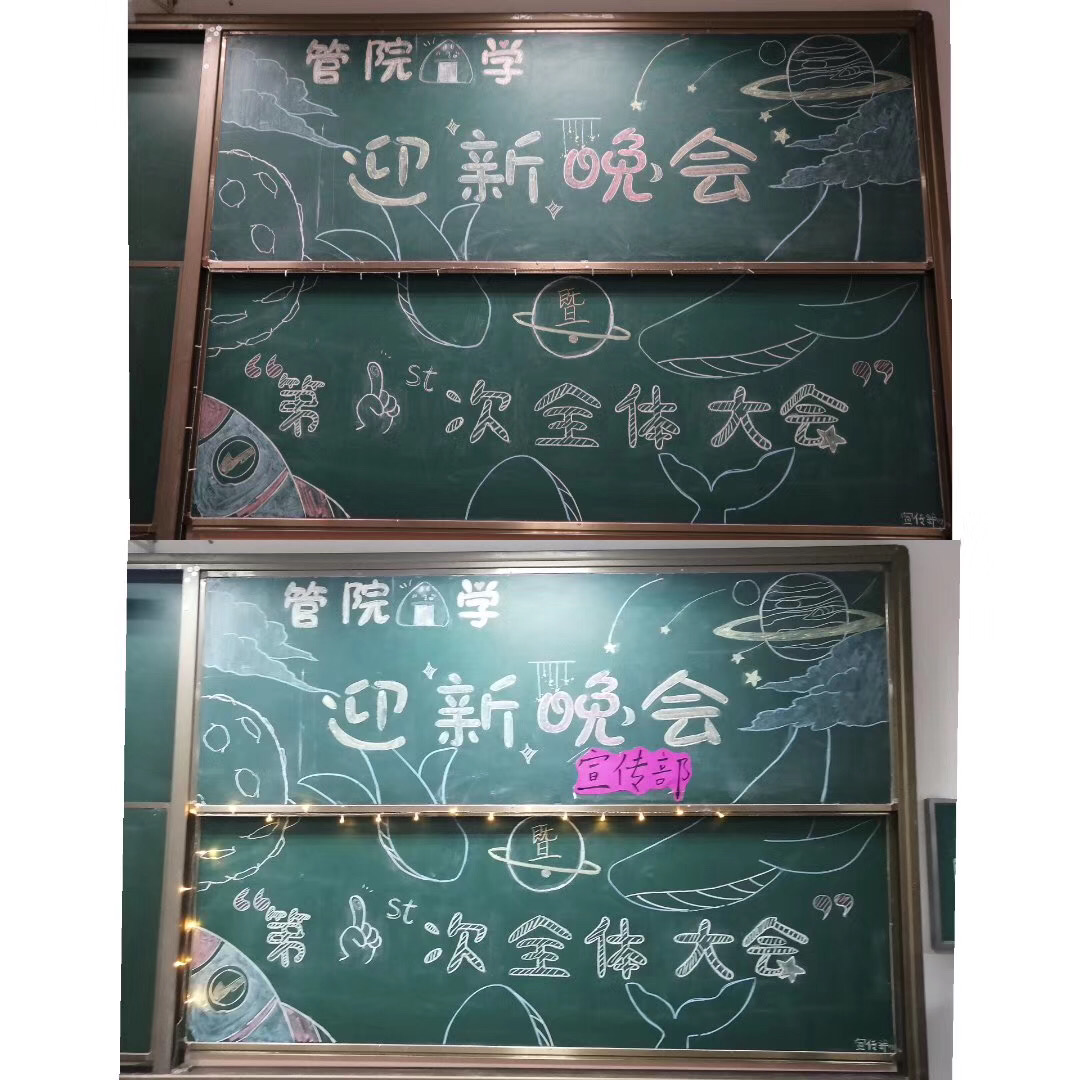 管院 学
迎新晚会
暨
“第 st次全体大会”
宣传部
管院 学
迎新晚会
宣传部
暨
“第 st次全体大会”
宣传部